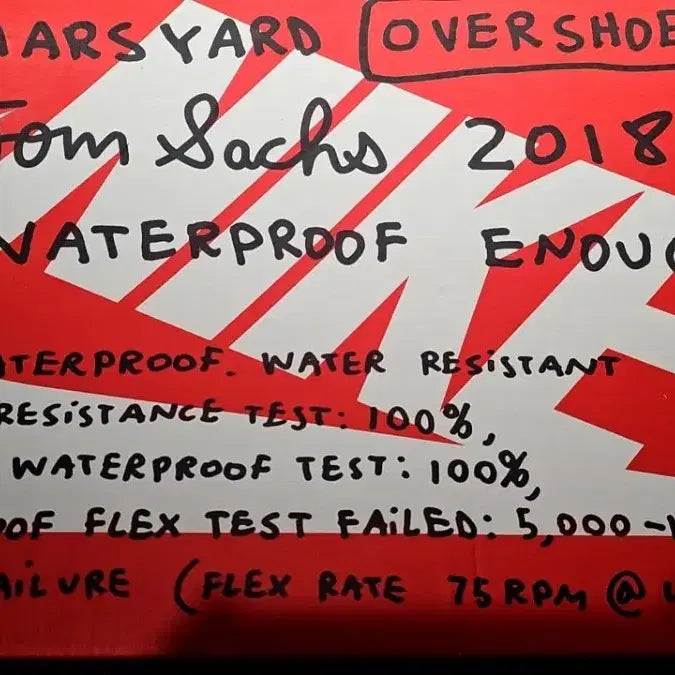 MARSYARD OVERSHOE
Tom Sachs 2018
WATERPROOF ENOUG
NIKE
ATERPROOF. WATER RESISTANT
RESISTANCE TEST: 100%,
WATERPROOF TEST: 100%,
OOF FLEX TEST FAILED: 5,000-
AILURE (FLEX RATE 75 RPM @